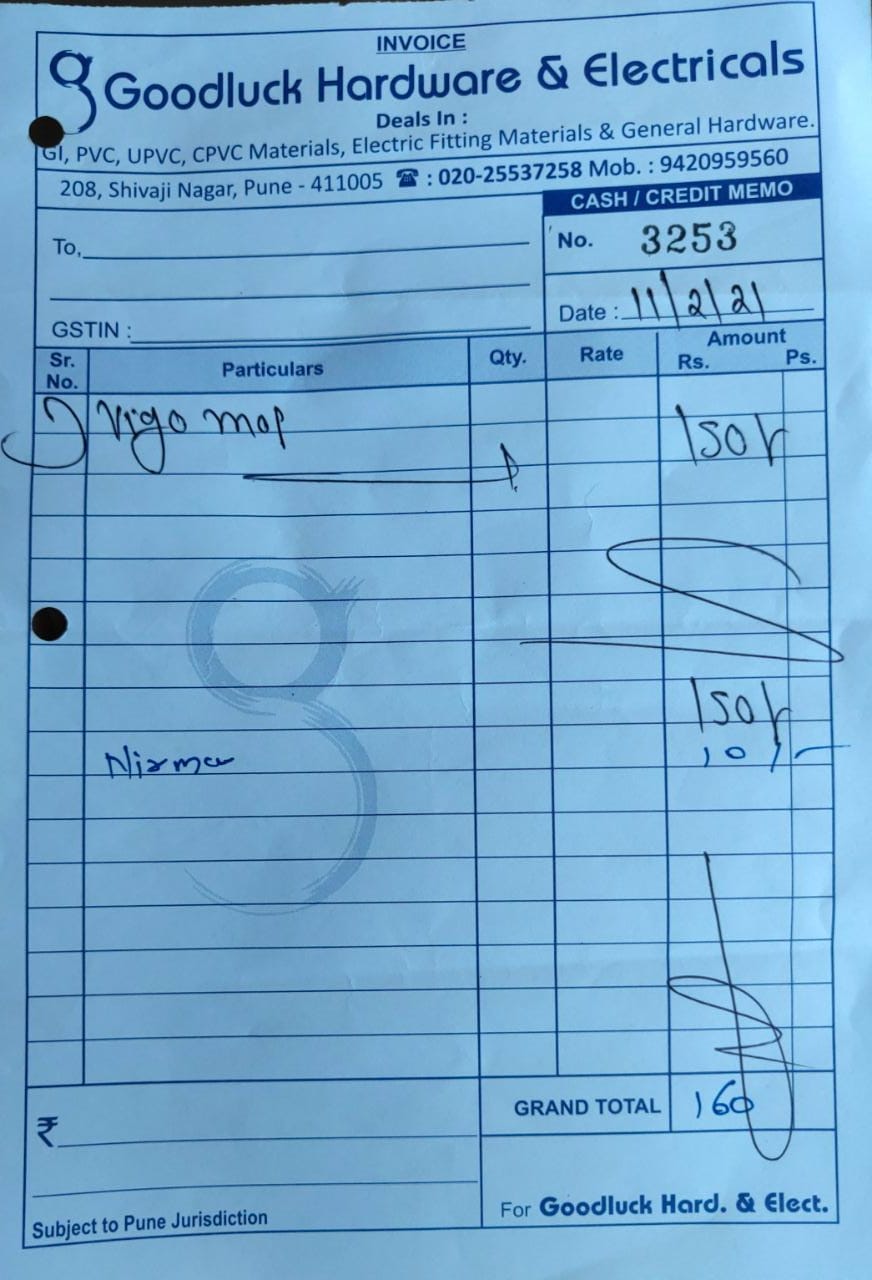 INVOICE
Goodluck Hardware & Electricals
Deals In :
GI, PVC, UPVC, CPVC Materials, Electric Fitting Materials & General Hardware.
208, Shivaji Nagar, Pune - 411005 ☎ : 020-25537258 Mob. : 9420959560
CASH / CREDIT MEMO
To,
No. 3253
Date : 11/2/21
GSTIN :
Sr. No. Particulars Qty. Rate Amount Rs. Ps.
Vigo mop 150/
150/
Nirma 10/-
GRAND TOTAL 160
₹
For Goodluck Hard. & Elect.
Subject to Pune Jurisdiction